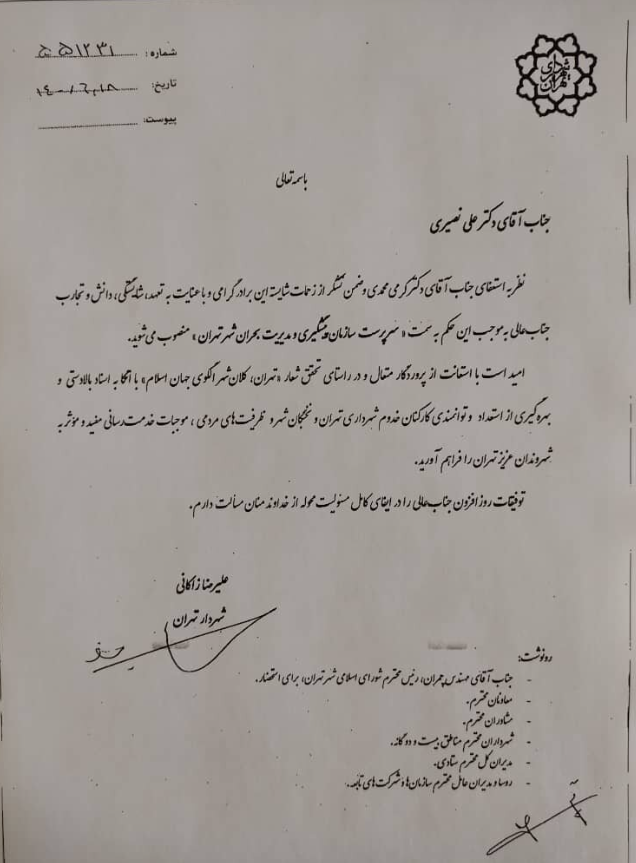 شهرداری تهران
شماره: ۵۱۲۳۱
تاریخ:
پیوست:
باسمه تعالی
جناب آقای دکتر علی نصیری
نظر به استعفای جناب آقای دکتر کرمی محمدی و ضمن تشکر از زحمات شایسته این برادر گرامی و با عنایت به تعهد، شایستگی، دانش و تجارب
جنابعالی به موجب این حکم به سمت «سرپرست سازمان پیشگیری و مدیریت بحران شهر تهران» منصوب می‌شوید.
امید است با استعانت از پروردگار متعال و در راستای تحقق شعار «تهران، کلان‌شهر الگوی جهان اسلام» با اتکا به اسناد بالادستی و
بهره‌گیری از استعداد و توانمندی کارکنان خدوم شهرداری تهران و نخبگان شهر و ظرفیت‌های مردمی، موجبات خدمت‌رسانی مفید و مؤثر به
شهروندان عزیز تهران را فراهم آورید.
توفیقات روزافزون جنابعالی را در ایفای کامل مسئولیت محوله از خداوند منان مسألت دارم.
علیرضا زاکانی
شهردار تهران
رونوشت:
- جناب آقای مهندس چمران، رئیس محترم شورای اسلامی شهر تهران، برای استحضار.
- معاونان محترم.
- مشاوران محترم.
- شهرداران محترم مناطق بیست و دو گانه.
- مدیران کل محترم ستادی.
- روسا و مدیران عامل محترم سازمان‌ها و شرکت‌های تابعه.